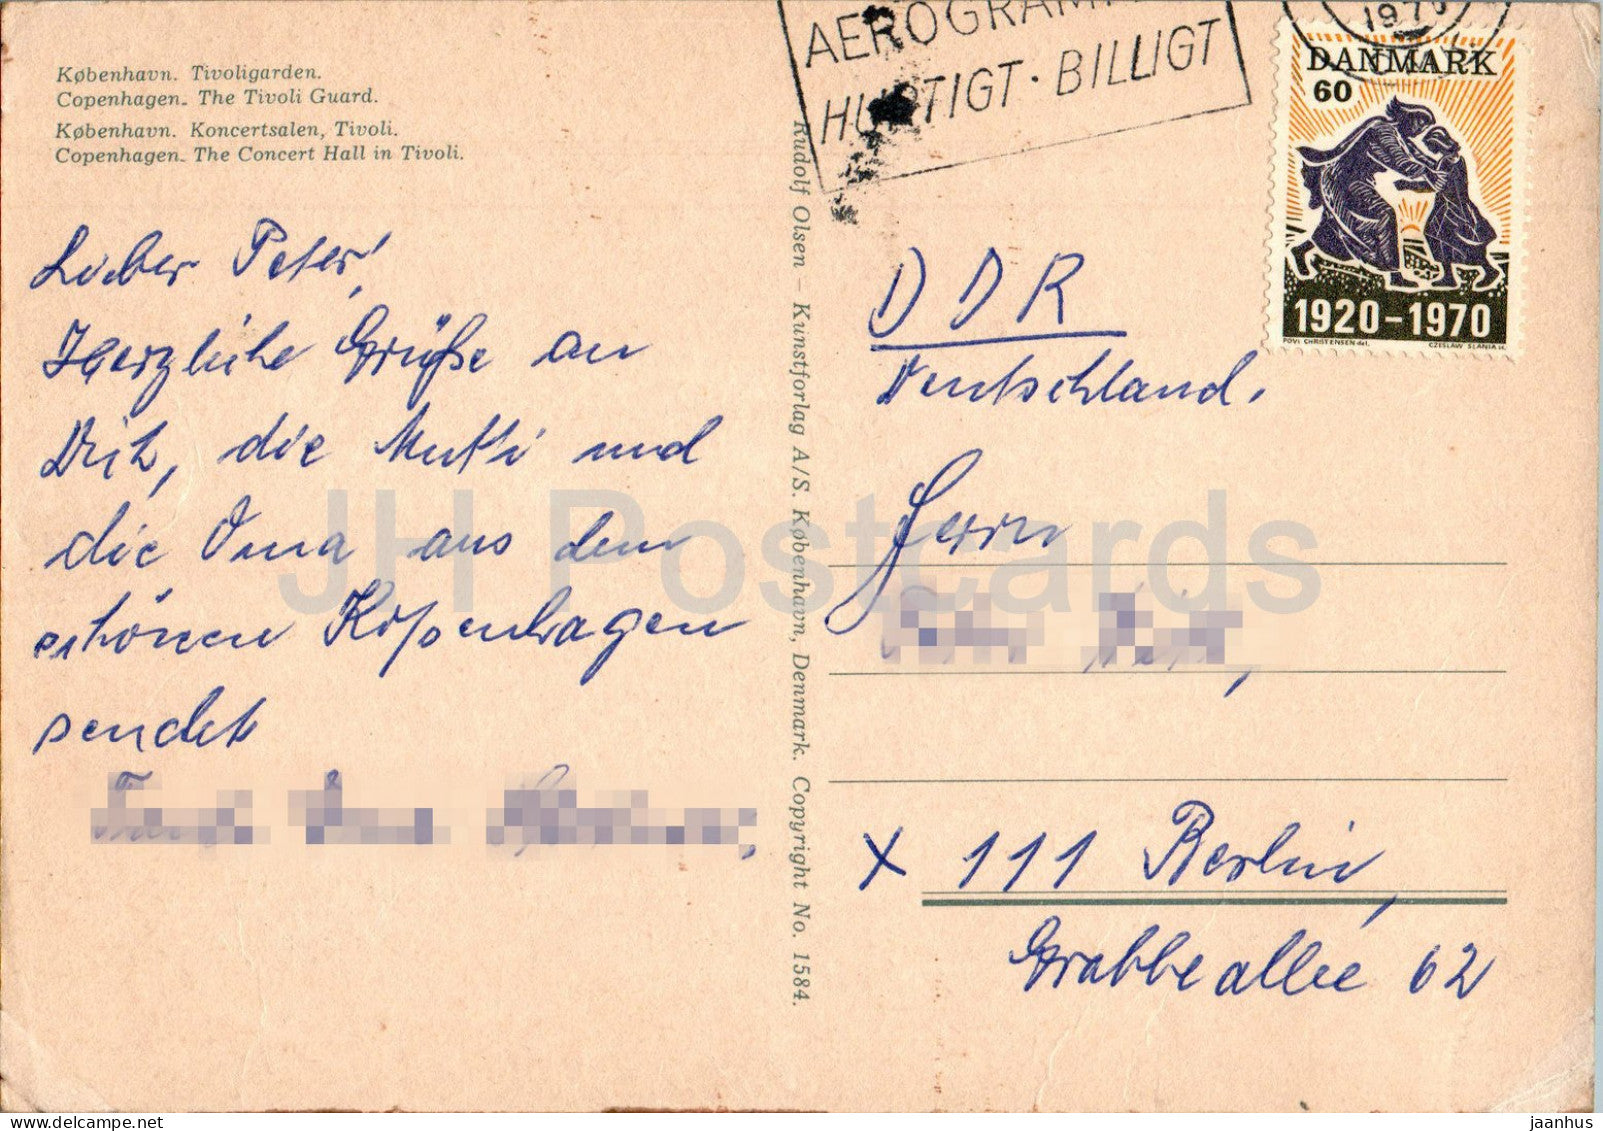 København. Tivoligarden.
Copenhagen. The Tivoli Guard.
København. Koncertsalen, Tivoli.
Copenhagen. The Concert Hall in Tivoli.
Lieber Peter!
Herzliche Grüße an
Dich, die Mutti und
die Oma aus dem
schönen Kopenhagen
sendet
Rudolf Olsen - Kunstforlag A/S. København, Denmark. Copyright No. 1584.
HURTIGT · BILLIGT
DANMARK
60
1920-1970
POVL CHRISTENSEN del.
CZESLAW SLANIA sc.
DDR
Deutschland.
Herrn
x 111 Berlin,
Grabbeallee 62
JH Postcards
jaanhus